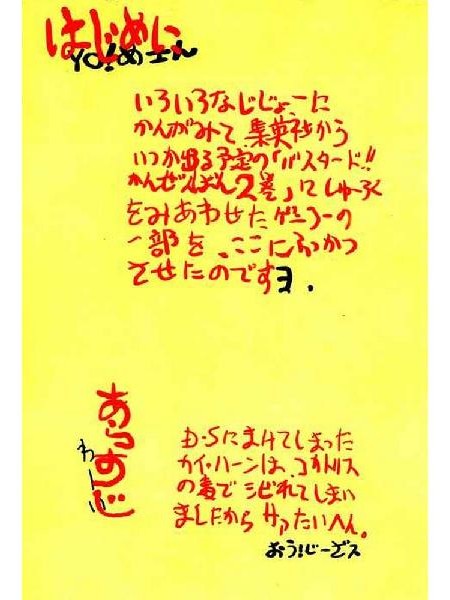 はじめに
YO!めエん
いろいろなじじょーに
かんがみて、集英社から
いつか出る予定の「バスタード!!
かんぜんばん2巻」にしゅーろく
をみあわせたゲンコーの
一部を、ここにふっかつ
させたのですヨ.
あらすじ
D・Sにまけてしまった
カイ・ハーンは、コカトリス
の毒でシビれてしまい
ましたから サアたいへん。
おう!じーざス